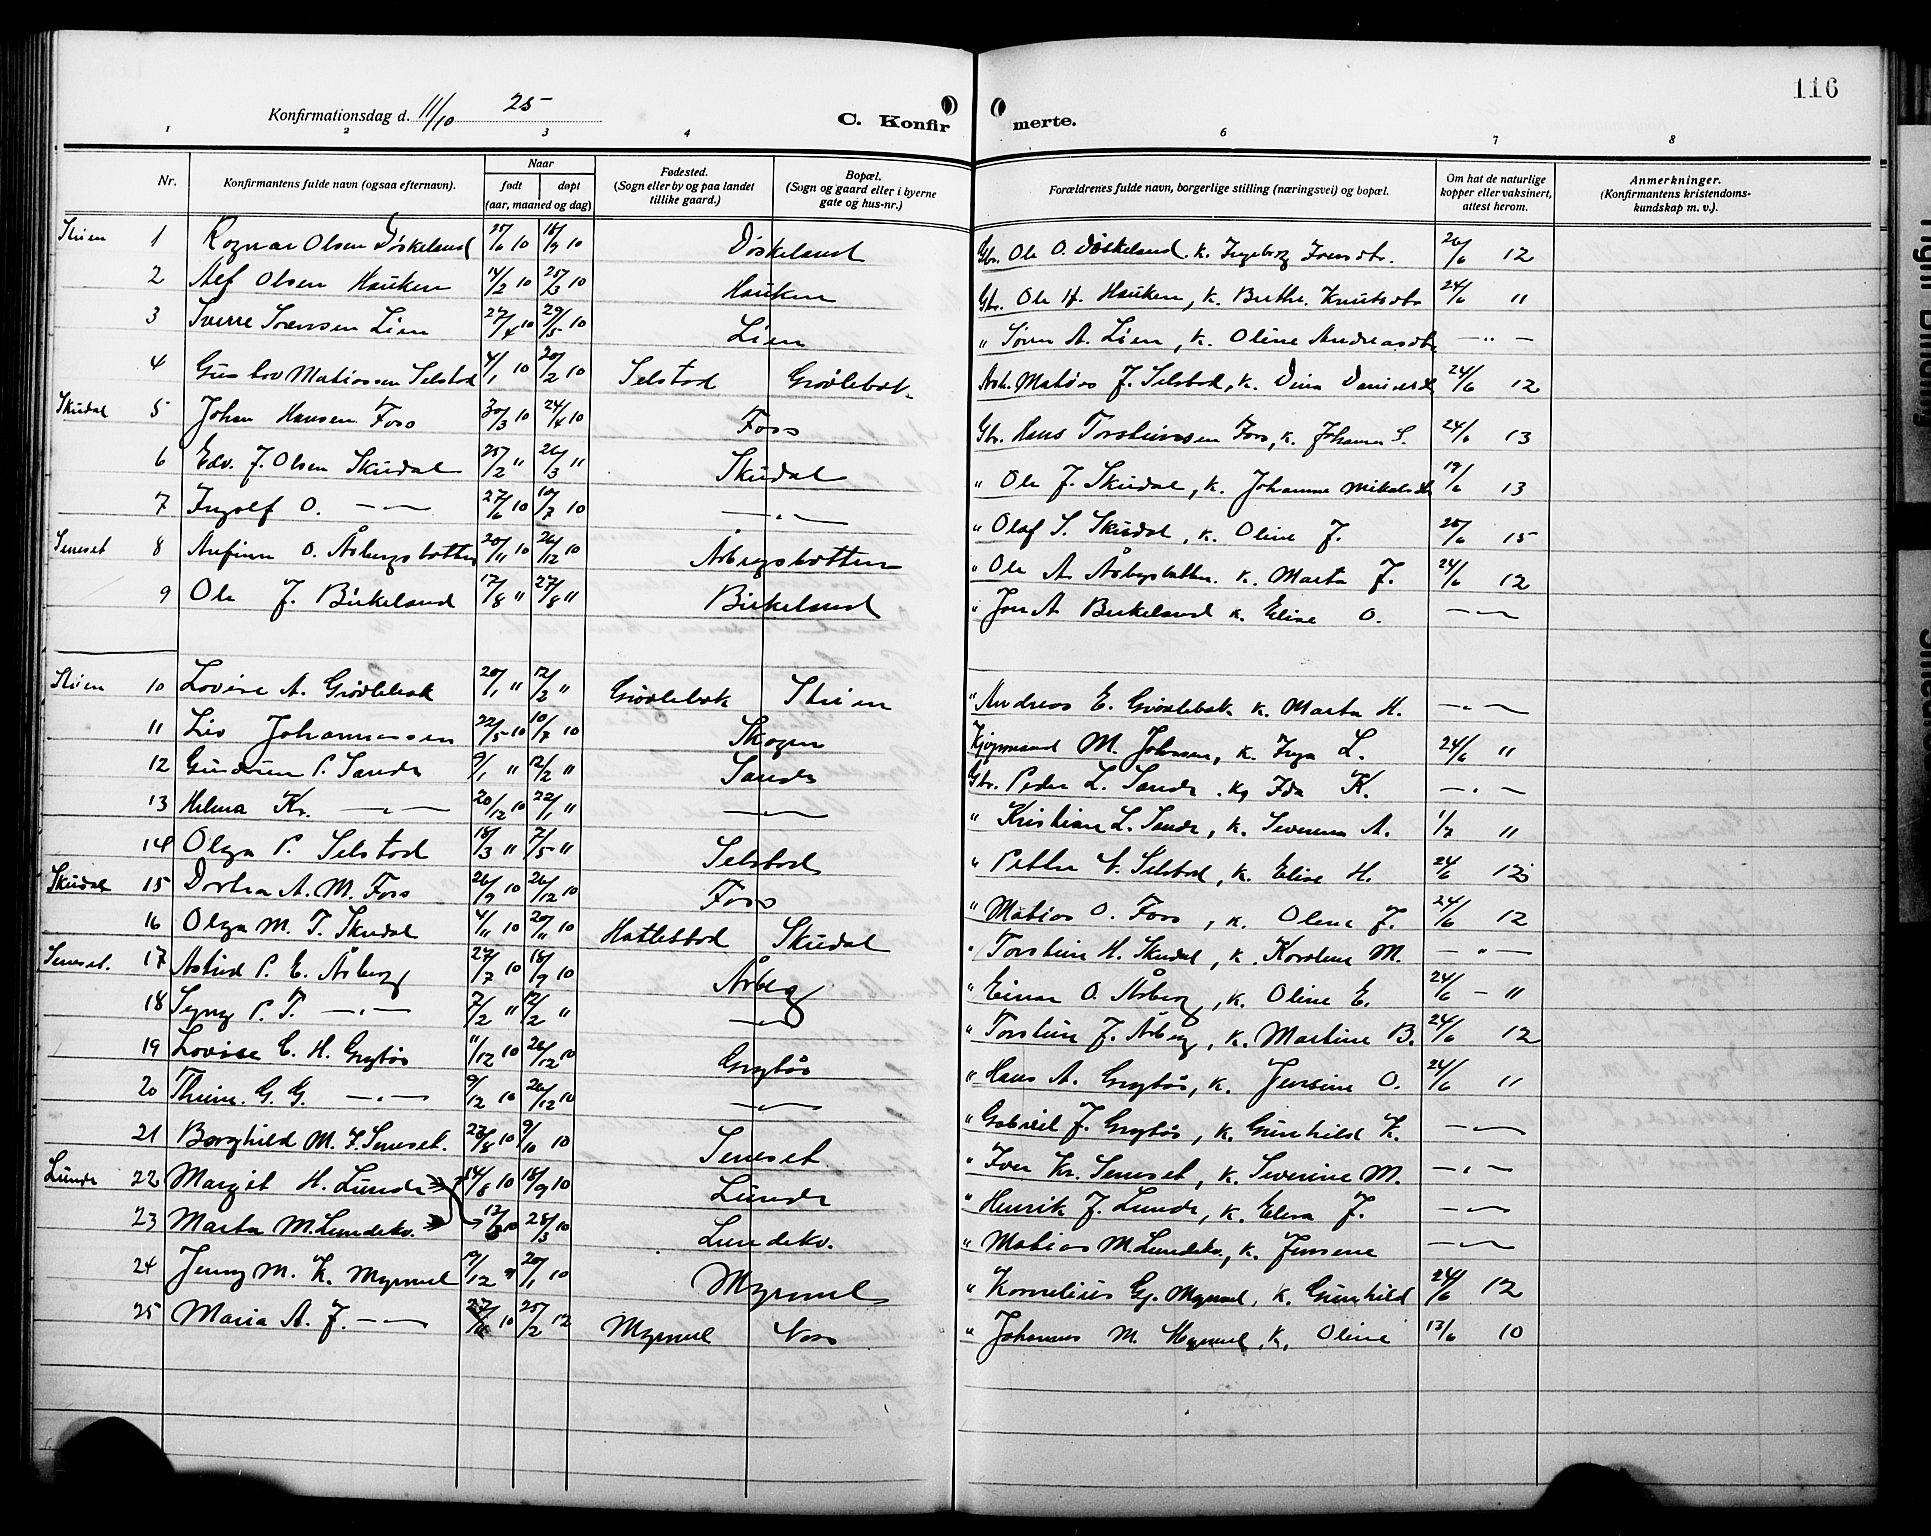 116
Konfirmationsdag d. 11/10 25
C. Konfirmerte.
1 2 3 4 6 7 8
Nr. Konfirmantens fulde navn (ogsaa efternavn). Naar født døpt (aar, maaned og dag) Fødested. (Sogn eller by og paa landet tillike gaard.) Bopæl. (Sogn og gaard eller i byerne gate og hus-nr.) Forældrenes fulde navn, borgerlige stilling (næringsvei) og bopæl. Om hat de naturlige kopper eller vaksinert, attest herom. Anmerkninger. (Konfirmantens kristendomskundskap m. v.).
1 Ragnar Olsen Døskeland 10 18/9 10 Døskeland Gbr. Ole O. Døskeland k. Ingeborg 12
2 Alf Olsen Hauken 14/2 10 25/3 10 Hauken Gbr. Ole H. Hauken, k. Berthe Knutsdtr 24/6 "
3 Sverre Sørensen Lien 27/4 10 29/5 10 Lien " Søren A. Lien, k. Oline Andreasdtr — " —
4 Gustav Matiassen Selstad 4/1 10 20/2 10 Selstad Grøvlebak Matias J. Selstad, k. Dina 24/6 12
Skudal 5 Johan Hansen Foss 30/3 10 24/4 10 Foss Gbr. Hans Torsteinssen Foss, k. Johanna S. 24/6 13
6 Edv. J. Olsen Skudal 25/2 " 26/3 " Skudal " Ole J. Skudal, k. Johanne Mikalsdtr 19/6 13
7 Ingolf O. — " — 27/6 10 10/7 10 — " — " Olaf S. Skudal, k. Oline J. 25/6 15
Seneset 8 Arfinn O. Årbergsbotten 20/11 10 26/12 10 Årbergsbotten " Ole A. Årbergsbotten k. Marta J. 24/6 12
9 Ole J. Birkeland 17/8 " 27/8 " Birkeland " Jon A. Birkeland k. Elise O. — " —
10 Lovise A. Grøvlebak 20/1 " 12/2 " Grøvlebak " Andreas E. Grøvlebak k. Marta H. — " —
11 Liv Johannessen 22/5 10 10/7 10 Skogen Kjøpmand M. Johnsen, k. Inga L. 24/6 "
12 Gudrun P. Sande 9/1 " 12/2 " Sande Gbr. Peder L. Sande k. Ida K. — " —
13 Helena Kr. — " — 20/12 10 22/1 " — " — " Kristian L. Sande, k. Severina A. 1/7 "
14 Olga P. Selstad 18/3 " 7/5 " Selstad " Petter N. Selstad, k. Elise H. 24/6 12
Skudal 15 Dorthea A. M. Foss 26/9 10 26/12 10 Foss " Matias O. Foss, k. Oline J. 24/6 12
16 Olga M. T. Skudal 4/11 10 20/11 10 Hatlestad Skudal " Torstein H. Skudal, k. Karoline M. — " —
Seneset. 17 Astrid P. E. Årberg 27/7 10 18/9 10 Årberg " Einar O. Årberg, k. Oline E. 24/6 — "
18 Signy P. T. — " — 7/2 " 12/2 " — " — " Torstein J. Årberg, k. Martine B. 24/6 12
19 Lovise C. H. Grytøs 11/12 10 26/12 10 Grytøs " Hans A. Grytøs, k. Jensine O. 24/6 "
20 G. G. — " — 9/12 10 26/12 10 — " — " Gabriel J. Grytøs, k. Gunhild K. — " —
21 Borghild M. I. Seneset. 28/8 10 9/10 10 Seneset. " Iver Kr. Seneset, k. Severine M. — " —
Lunde 22 Margit H. Lunde 14/8 10 18/9 10 Lunde " Henrik J. Lunde, k. Elisa J. — " —
23 Marta M. Lundekv. 10 28/3 10 Lundekv. " Matias M. Lundekv., k. Jensine — " —
24 Jenny M. K. Myrmel 17/12 9 20/1 10 Myrmel " Kornelius Gj. Myrmel, k. Gunhild 24/6 12
25 Maria A. J. — " — 10 25/2 12 Myrmel Voss " Johannes M. Myrmel, k. Oline 13/6 10